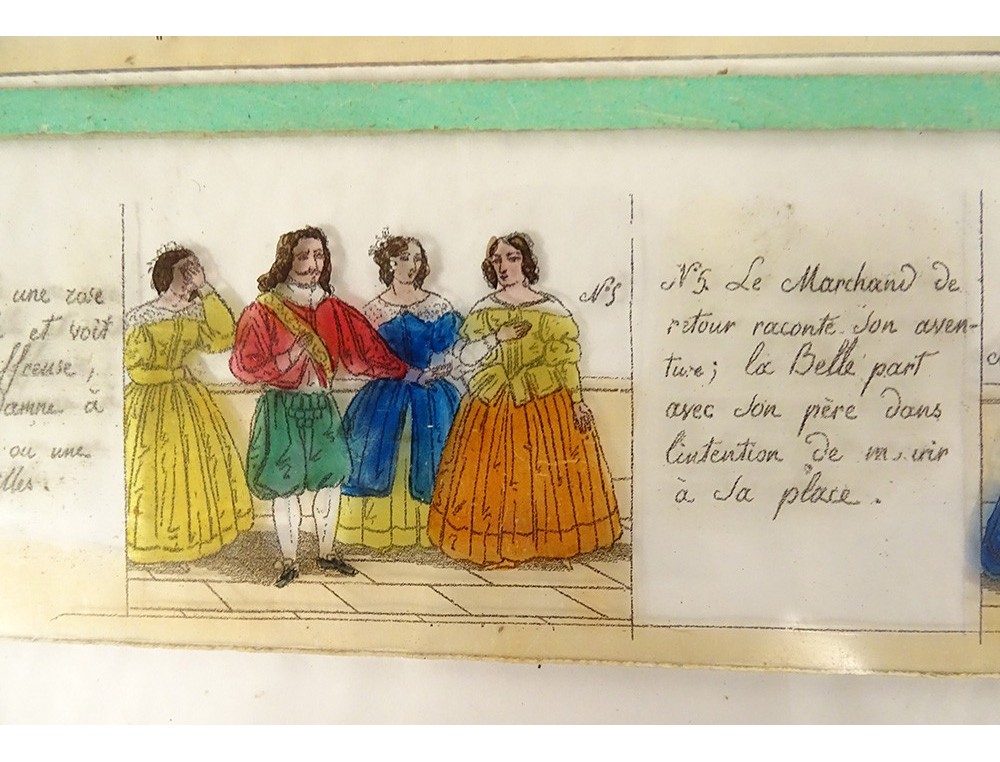 une rose
et voit
ffreuse,
damne à
ou une
lles.
N° 5
N° 5. Le Marchand de
retour raconte son aven-
ture; la Belle part
avec son père dans
l'intention de mourir
à sa place.